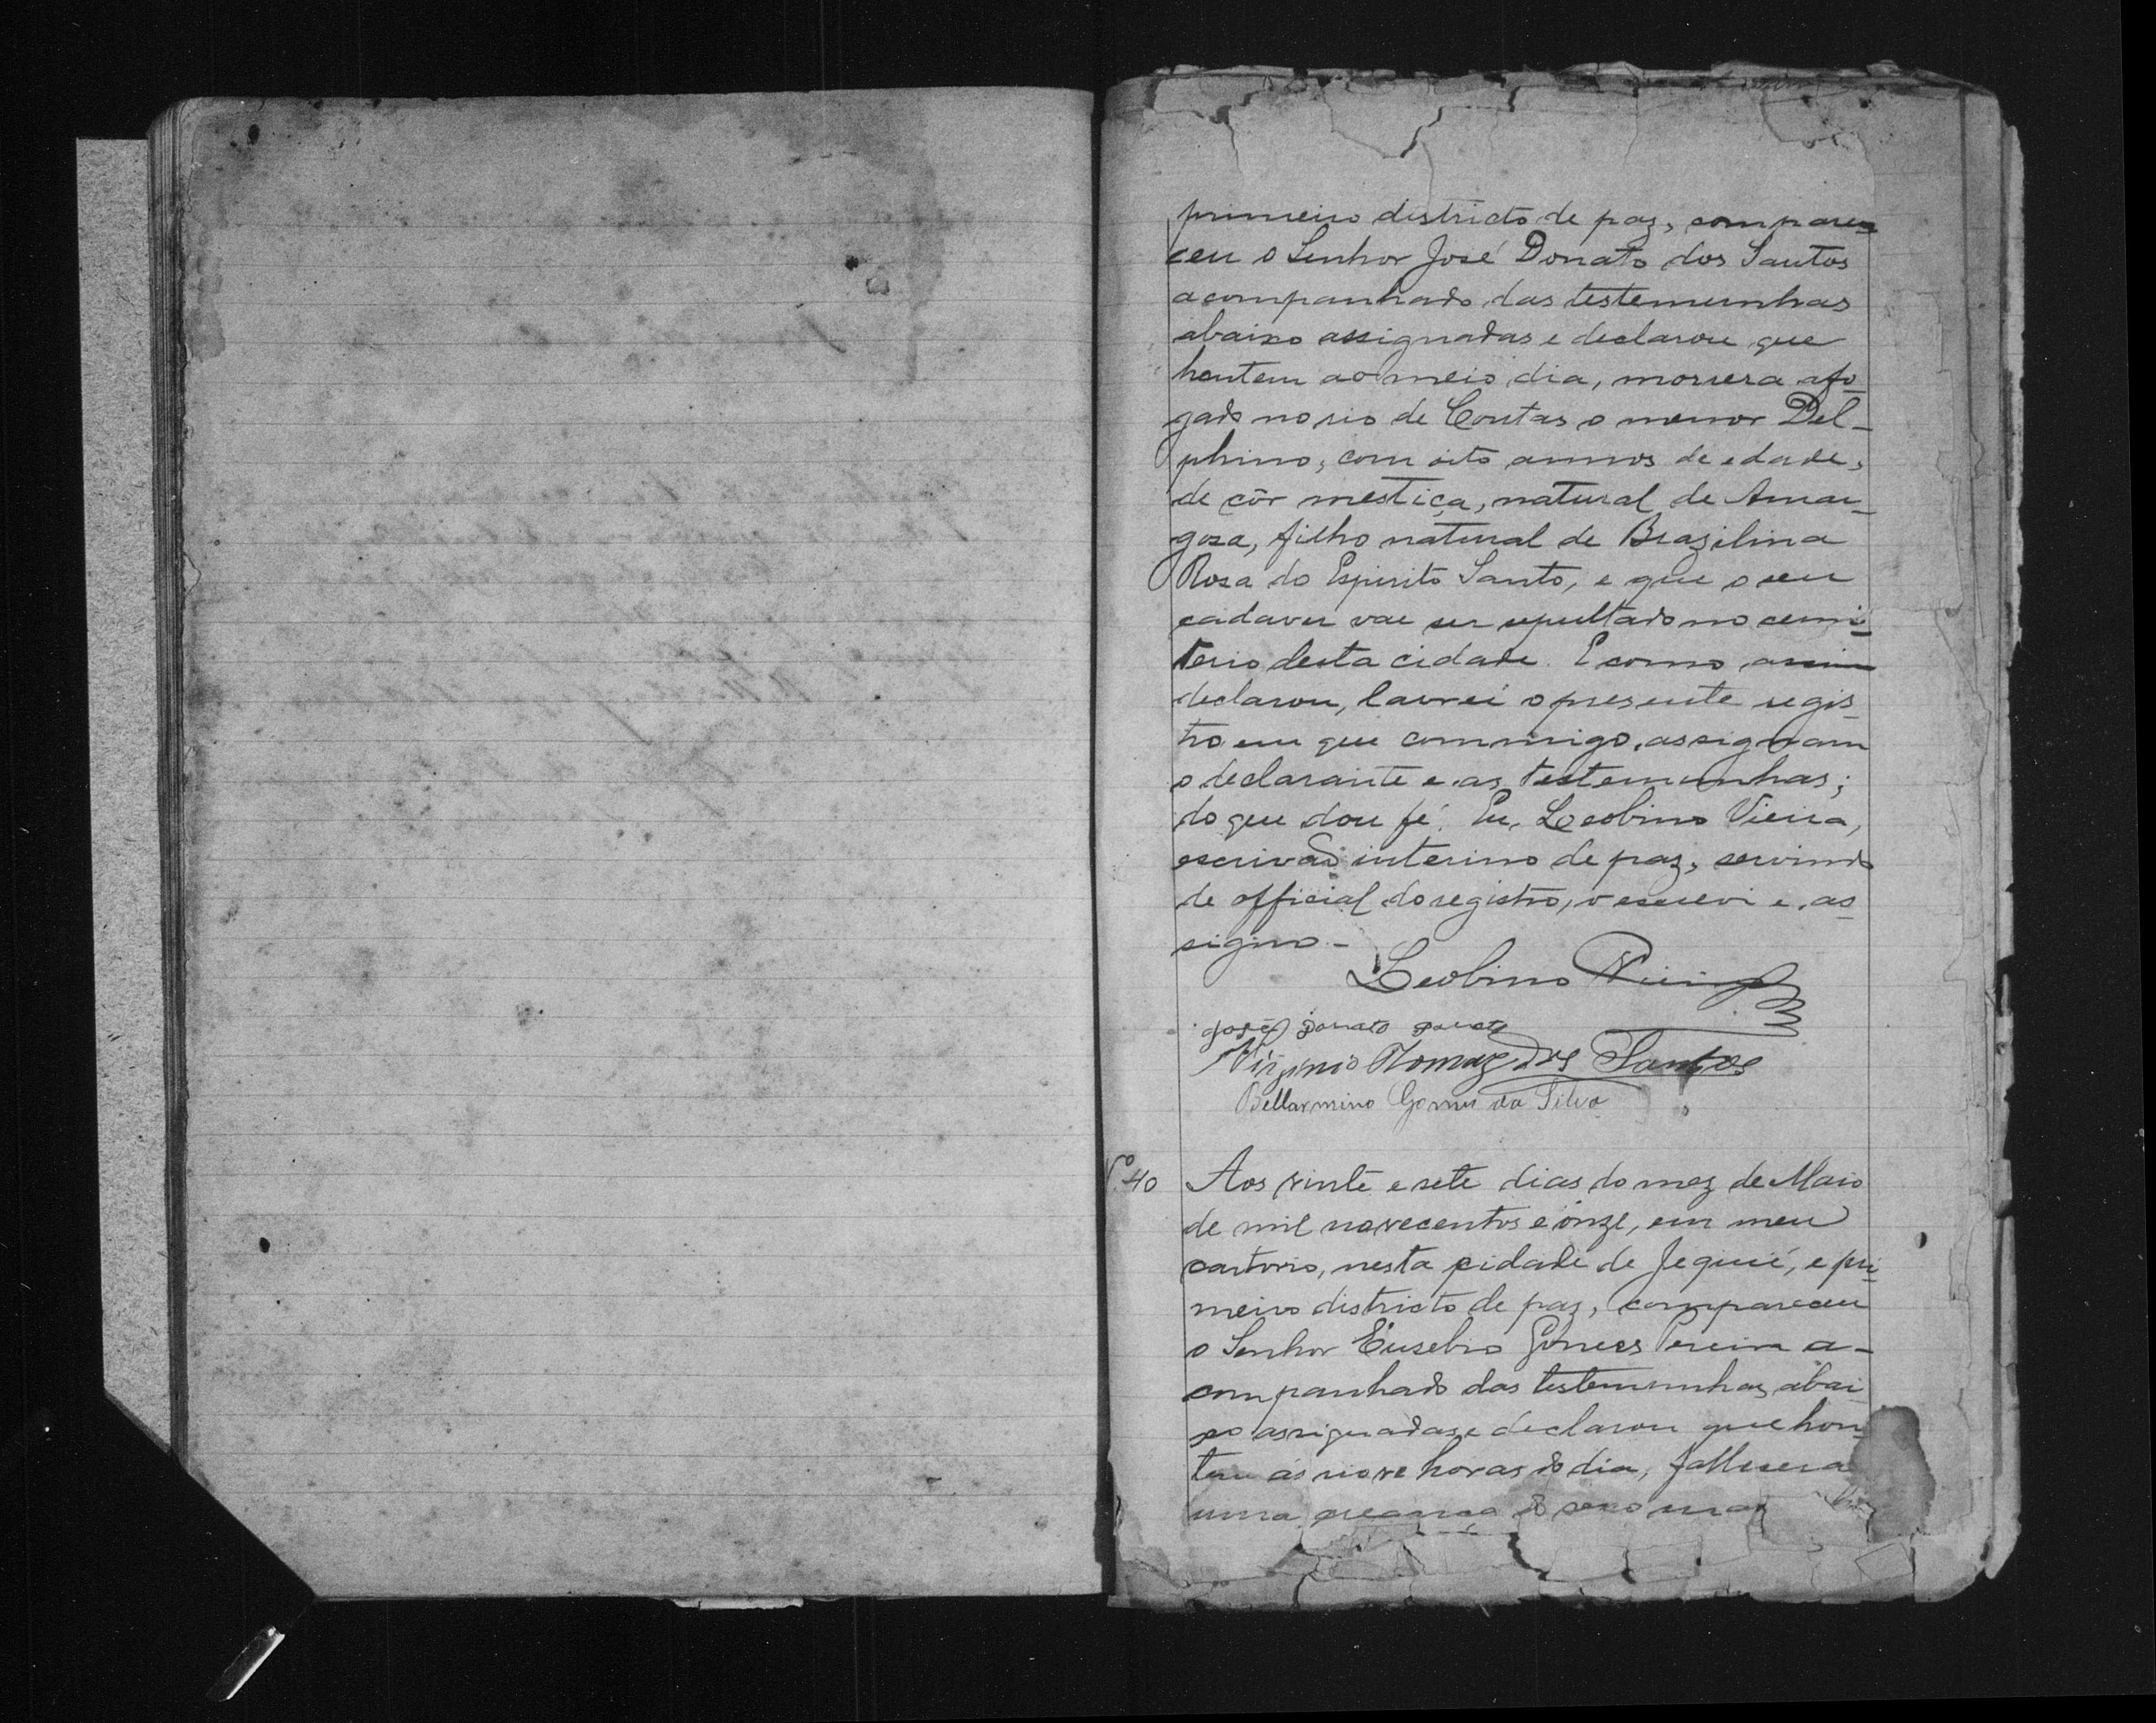 primeiro districto de paz, compare-
ceu o Senhor José Donato dos Santos
acompanhado das testemunhas
abaixo assignadas e declarou que
hontem ao meio dia, morrera afo-
gado no rio de Contas o menor Del-
phino, com oito annos de edade,
de côr mestiça, natural de Amar-
gosa, filho natural de Brazilina
Rosa do Espirito Santo, e que o seu
cadaver vae ser sepultado no cemi-
terio desta cidade. E como assim
declarou, lavrei o presente regis-
tro em que commigo assignam
o declarante e as testemunhas;
do que dou fé. Eu, Leobino Vieira,
escrivão interino de paz, servindo
de official do registro, o escrevi e as-
signo.-
Leobino Vieira
José Donato
Virginio Tomaz dos Santos
Bellarmino Gomes da Silva
Nº 40 Aos vinte e sete dias do mez de Maio
de mil novecentos e onze, em meu
cartorio, nesta cidade de Jequié, e pri-
meiro districto de paz, compareceu
o Senhor Eusebio Gomes Pereira a-
companhado das testemunhas abai
xo assignadas e declarou que hon-
tem ás nove horas do dia, fallecera
uma creança do sexo mas